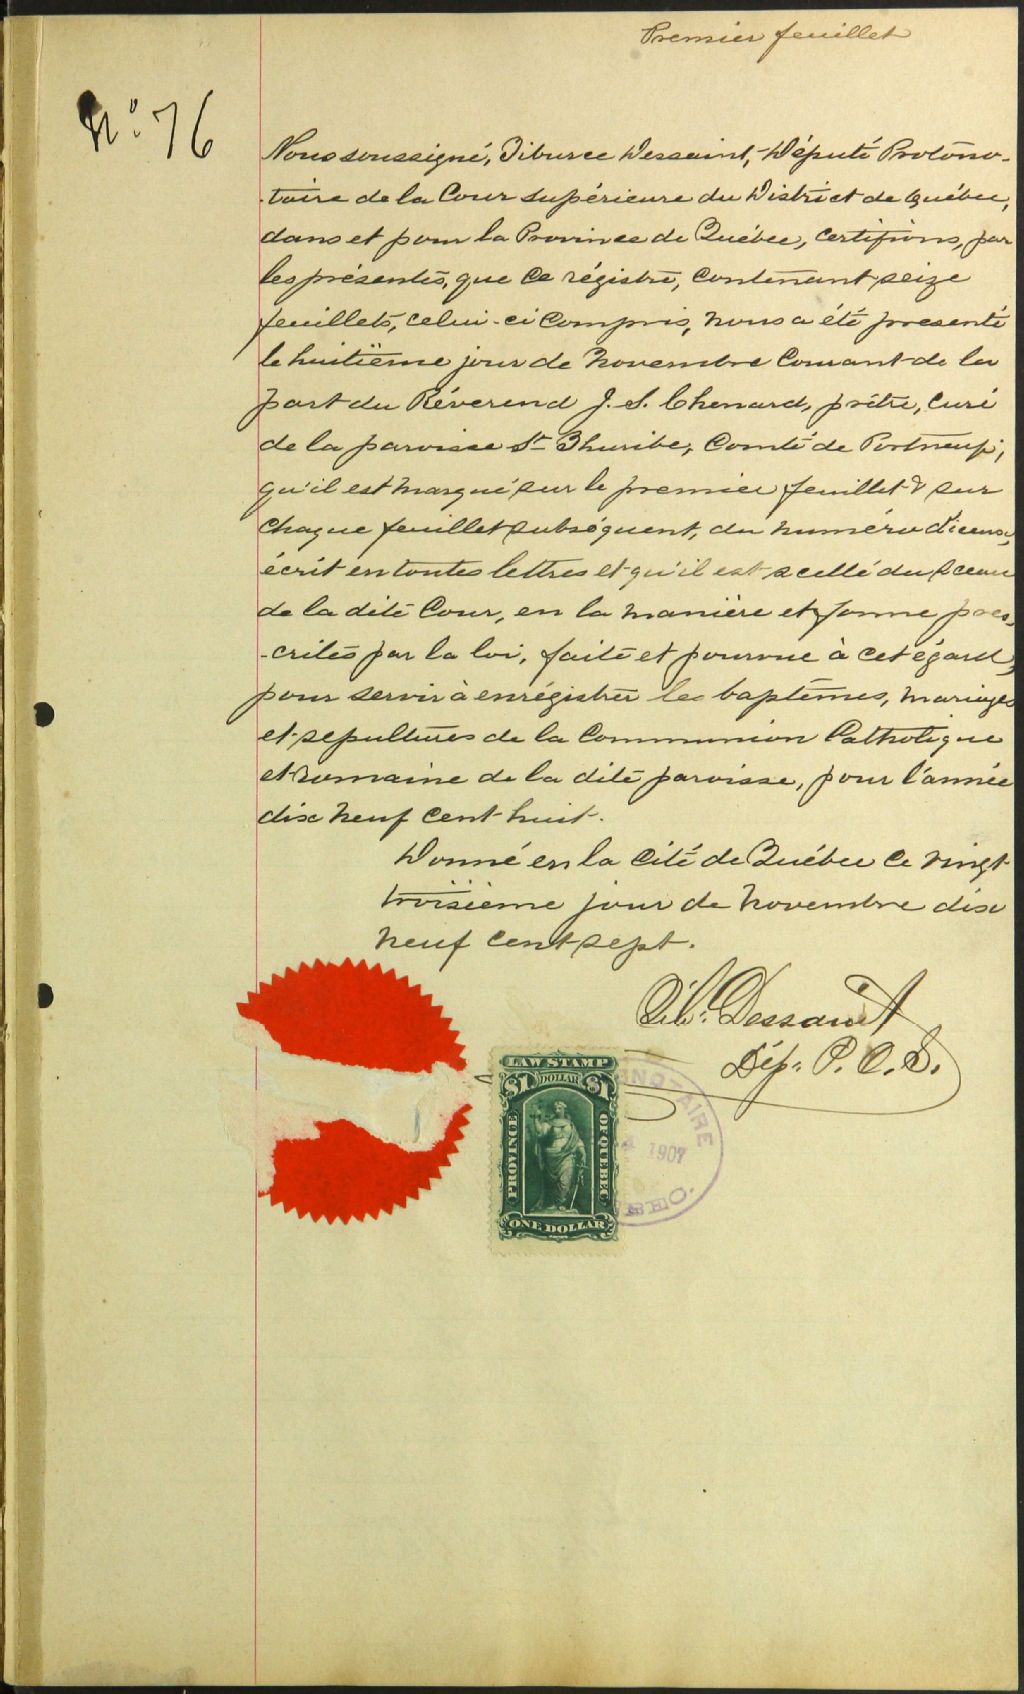 Premier feuillet
No. 76
Nous soussigné, Tiburce Dessaint, Député Protono-
-taire de la Cour Supérieure du District de Québec,
dans et pour la Province de Québec, certifions, par
les présentes, que ce régistre, contenant seize
feuillets, celui-ci compris, nous a été présenté
le huitième jour de Novembre courant de la
part du Révérend J. S. Chenard, prêtre, curé
de la paroisse St Thuribe, Comté de Portneuf;
qu'il est marqué sur le premier feuillet & sur
chaque feuillet subséquent, du numéro d'iceux,
écrit en toutes lettres et qu'il est scellé du sceau
de la dite Cour, en la manière et forme pres-
-crites par la loi, faite et pourvue à cet égard,
pour servir à enrégistrer les baptêmes, mariages
et sépultures de la Communion Catholique
et romaine de la dite paroisse, pour l'année
dix neuf cent huit.
Donné en la Cité de Québec ce vingt
troisième jour de Novembre dix
neuf cent sept.
Tib. Dessaint
Dép. P. C. S.
LAW STAMP
$1 DOLLAR $1
PROVINCE
OF QUEBEC
ONE DOLLAR
NOTAIRE
1907